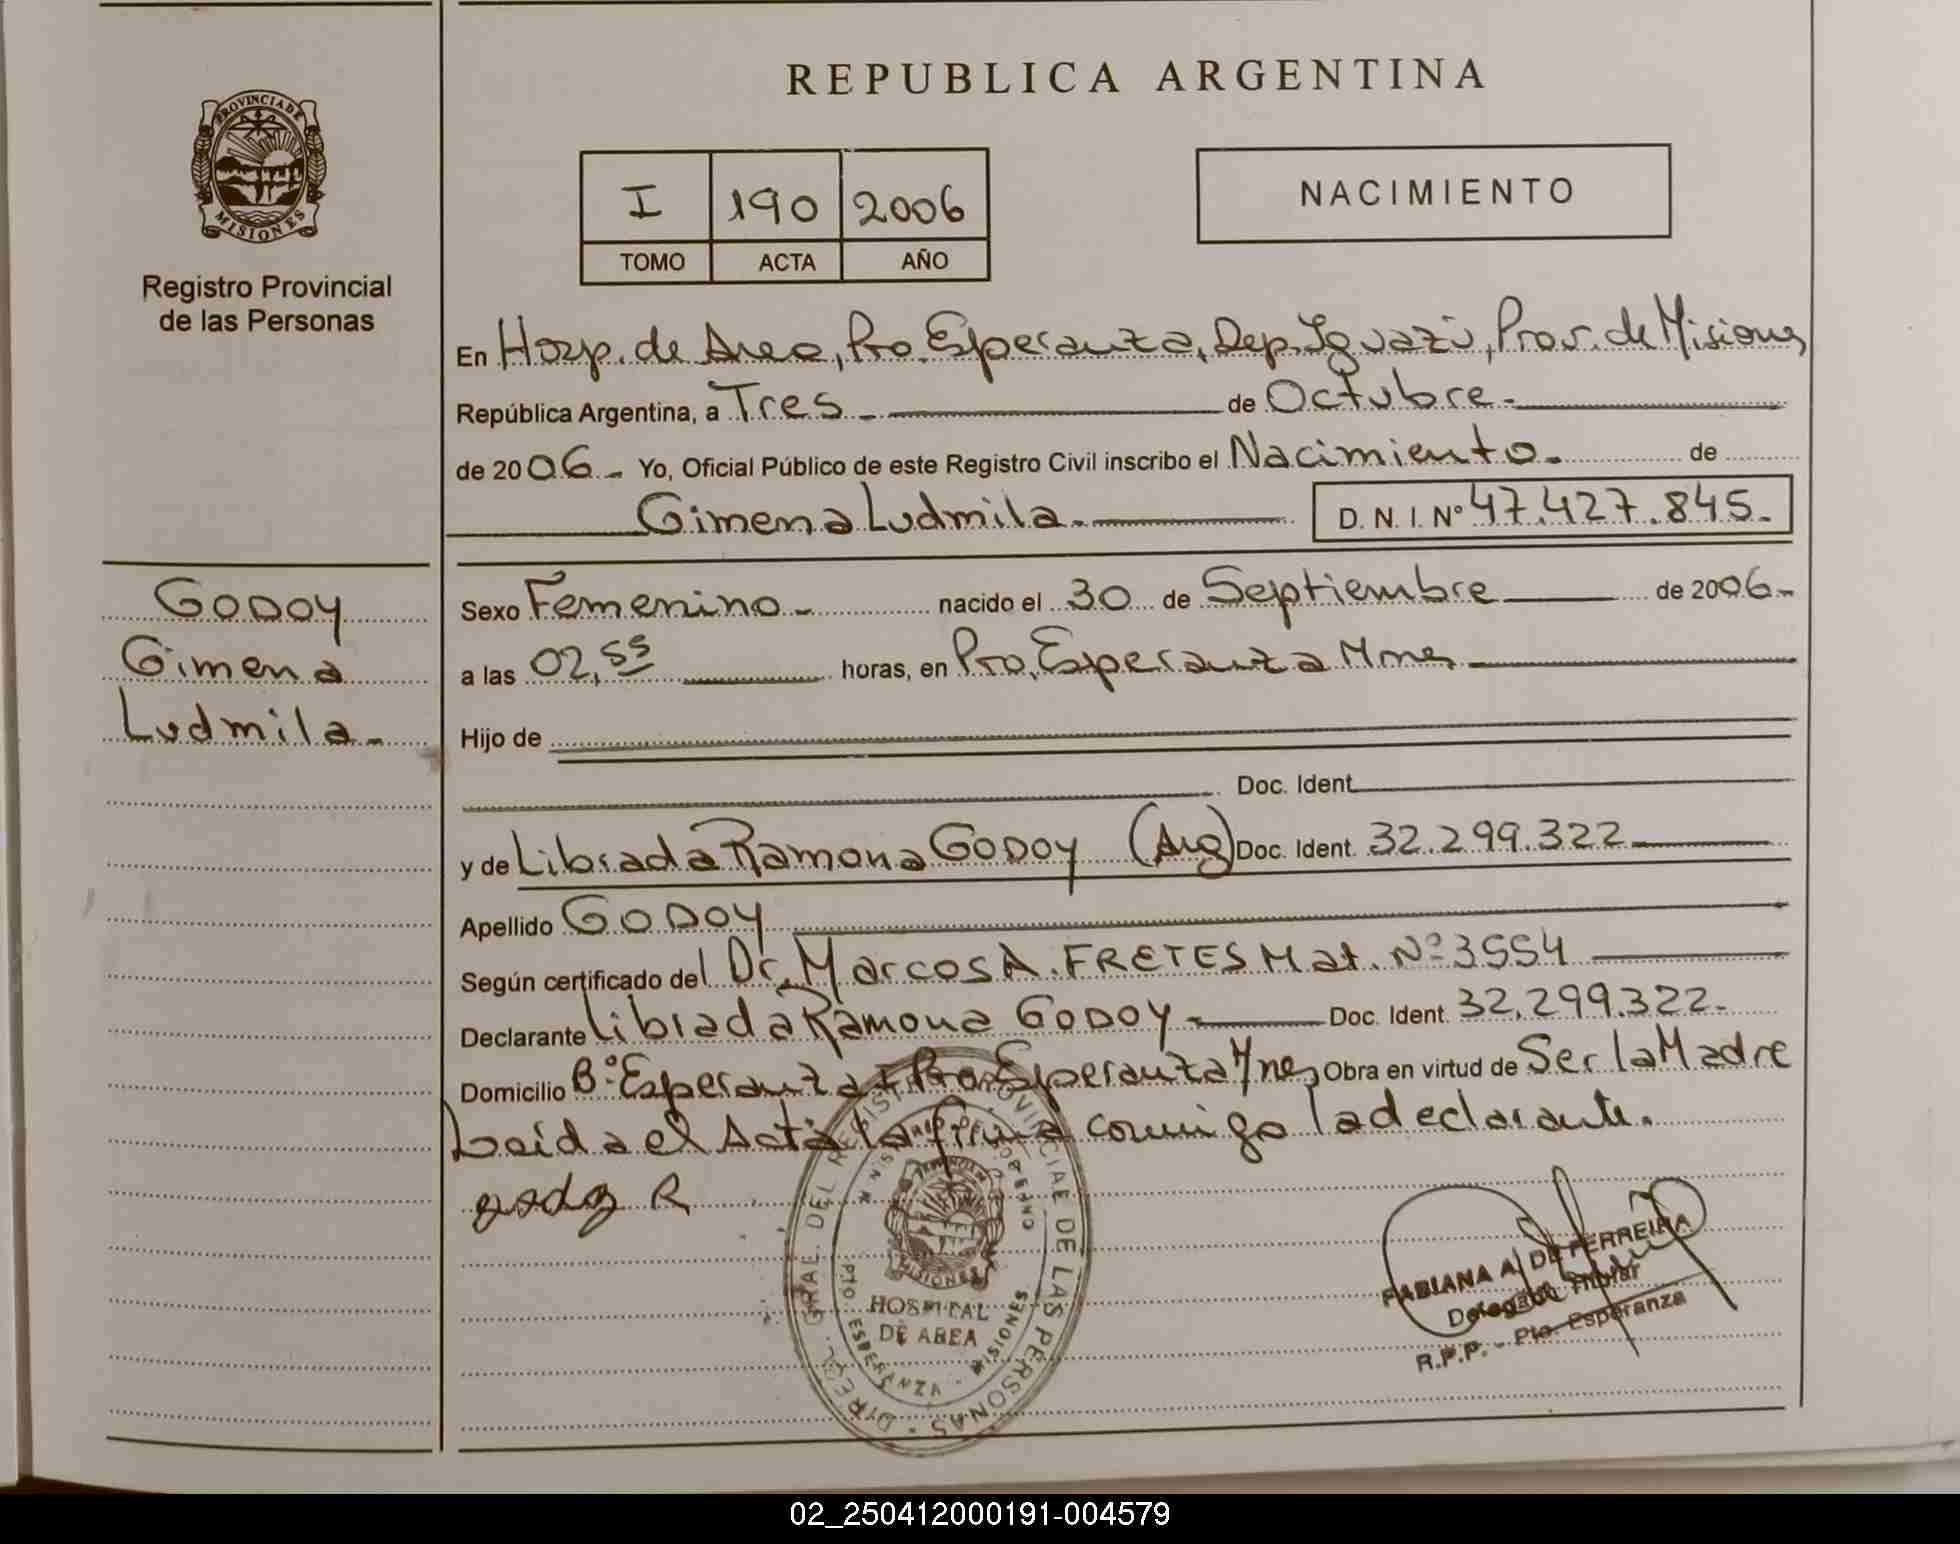 REPUBLICA ARGENTINA
PROVINCIA DE
MISIONES
Registro Provincial
de las Personas
I 190 2006
TOMO ACTA AÑO
NACIMIENTO
En Hosp. de Area, Pto. Esperanza, Dep. Iguazú, Prov. de Misiones
República Argentina, a Tres de Octubre.
de 2006. Yo, Oficial Público de este Registro Civil inscribo el Nacimiento. de
Gimena Ludmila. D. N. I. Nº 47.427.845.
GODOY
Gimena
Ludmila.
Sexo Femenino nacido el 30 de Septiembre de 2006
a las 02,55 horas, en Pto. Esperanza Mnes
Hijo de
Doc. Ident.
y de Librada Ramona GODOY (Arg) Doc. Ident. 32.299.322
Apellido GODOY
Según certificado del Dr. Marcos A. FRETES Mat. Nº 3554
Declarante Librada Ramona GODOY Doc. Ident. 32.299.322.
Domicilio Bº Esperanza I Pto. Esperanza Mnes Obra en virtud de Ser la Madre
Leida el Acta la firma conmigo la declarante.
godoy R
DIREC. GRAL. DEL REGISTRO PROVINCIAL DE LAS PERSONAS
MISIONES
HOSPITAL
DE AREA
PTO. ESPERANZA - MISIONES
FABIANA A. DE FERREIRA
Delegada Titular
R.P.P. - Pto. Esperanza
02_250412000191-004579